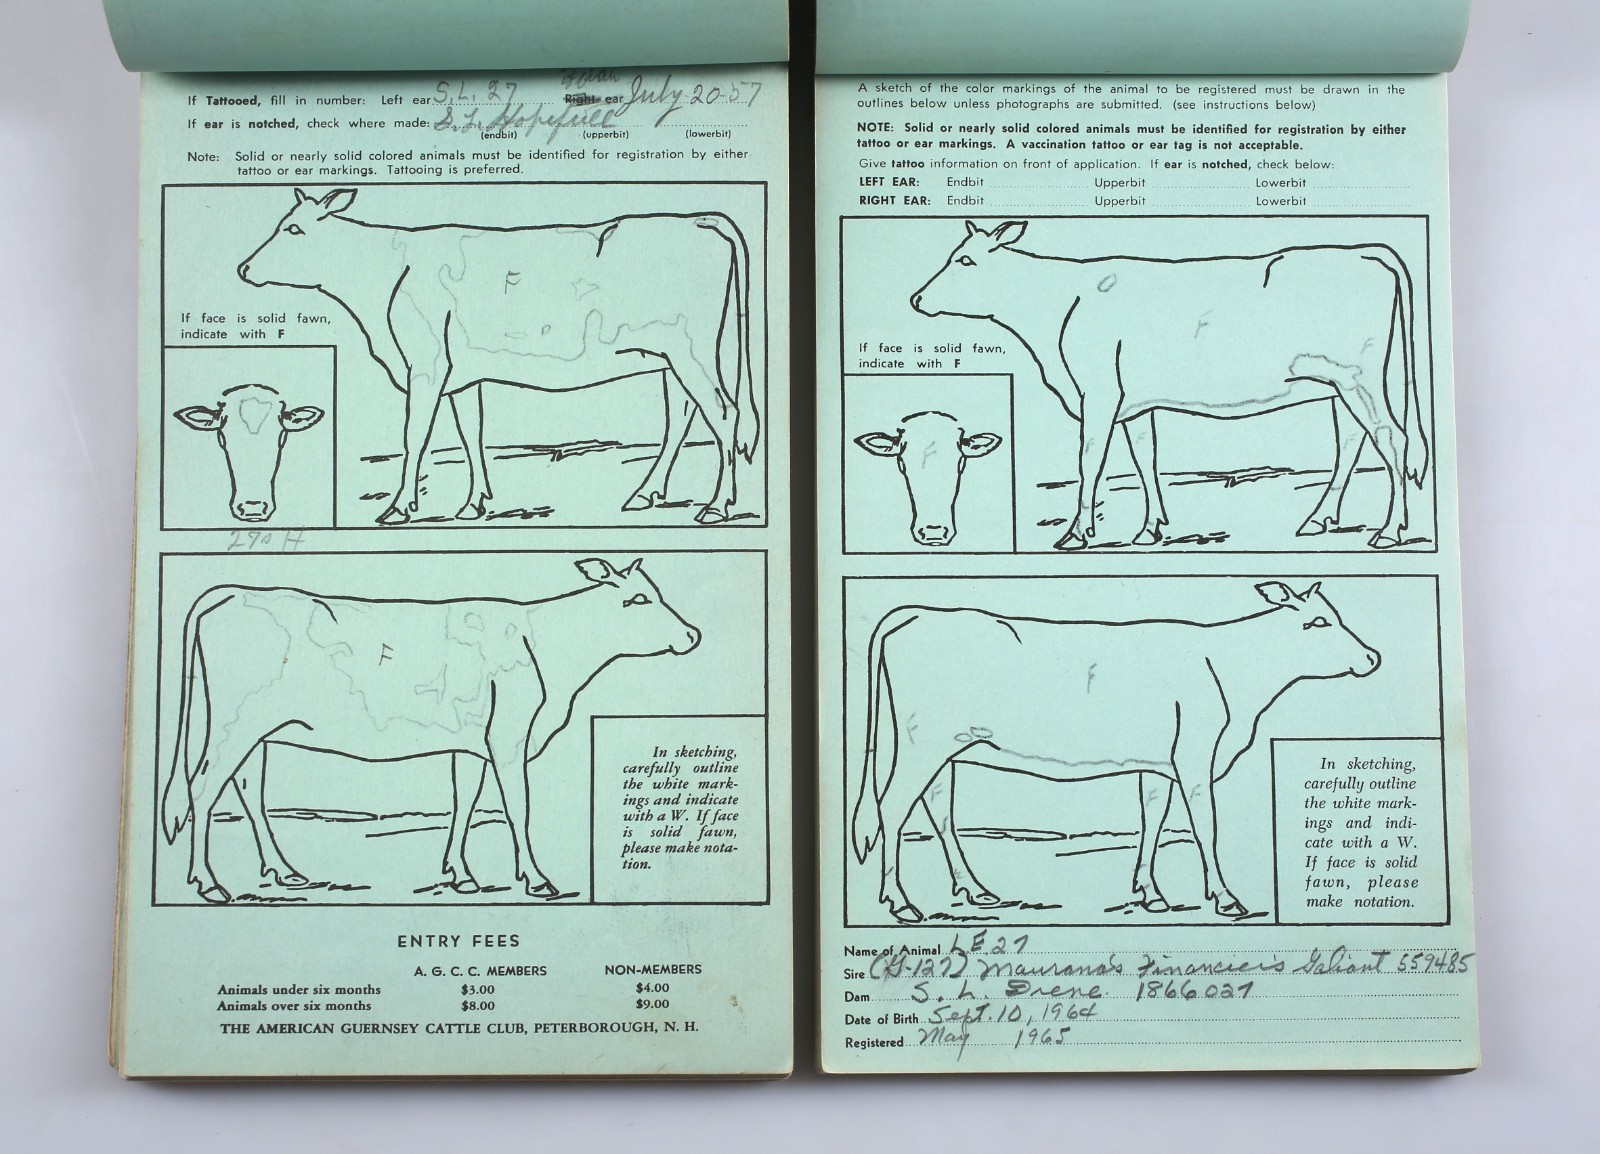 If Tattooed, fill in number: Left ear S.L. 27 Right ear July 20-57
If ear is notched, check where made: S.L. Hopefull
(endbit) (upperbit) (lowerbit)
Note: Solid or nearly solid colored animals must be identified for registration by either
tattoo or ear markings. Tattooing is preferred.
F
If face is solid fawn,
indicate with F
290 H
F
In sketching,
carefully outline
the white mark-
ings and indicate
with a W. If face
is solid fawn,
please make nota-
tion.
ENTRY FEES
A. G. C. C. MEMBERS NON-MEMBERS
Animals under six months $3.00 $4.00
Animals over six months $8.00 $9.00
THE AMERICAN GUERNSEY CATTLE CLUB, PETERBOROUGH, N. H.
A sketch of the color markings of the animal to be registered must be drawn in the
outlines below unless photographs are submitted. (see instructions below)
NOTE: Solid or nearly solid colored animals must be identified for registration by either
tattoo or ear markings. A vaccination tattoo or ear tag is not acceptable.
Give tattoo information on front of application. If ear is notched, check below:
LEFT EAR: Endbit Upperbit Lowerbit
RIGHT EAR: Endbit Upperbit Lowerbit
F
F
If face is solid fawn,
indicate with F
F
F F F
F
F
F F F
In sketching,
carefully outline
the white mark-
ings and indi-
cate with a W.
If face is solid
fawn, please
make notation.
Name of Animal L E 27
Sire (G-127) Maurana's Financier's Galiant 559485
Dam S. L. Irene 1866027
Date of Birth Sept. 10, 1964
Registered May 1965